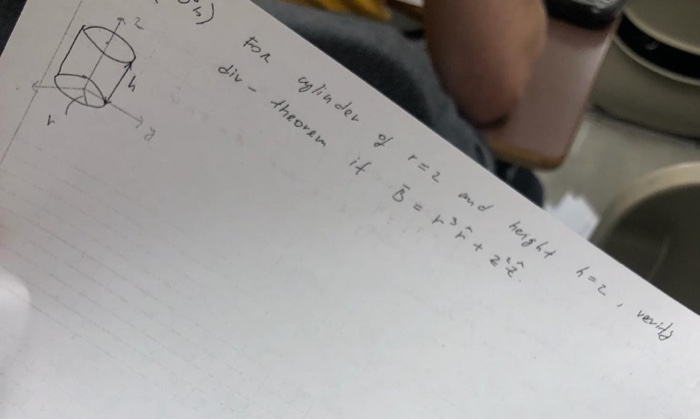 For cylinder of r=2 and height h=2, verify
div-theorem if B̄ = r³r̂ + z²ẑ.
z
h
r
y